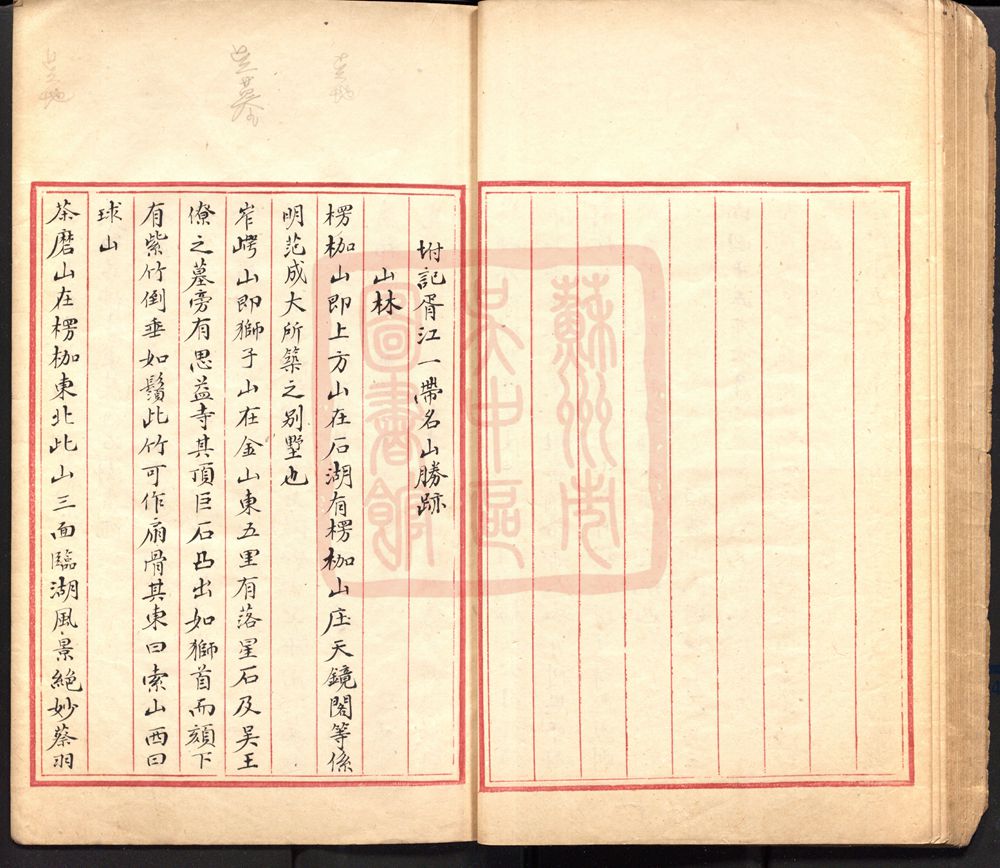 坿記胥江一帶名山勝跡
山林
楞枷山即上方山在石湖有楞枷山庄天鏡閣等係
明范成大所築之别墅也
岞崿山即獅子山在金山東五里有落星石及吴王
僚之墓旁有思益寺其頂巨石凸出如獅首而頦下
有紫竹倒垂如鬚此竹可作扇骨其東曰索山西曰
球山
茶磨山在楞枷東北此山三面臨湖風景絶妙蔡羽
蘇州市
吴中區
圖書館